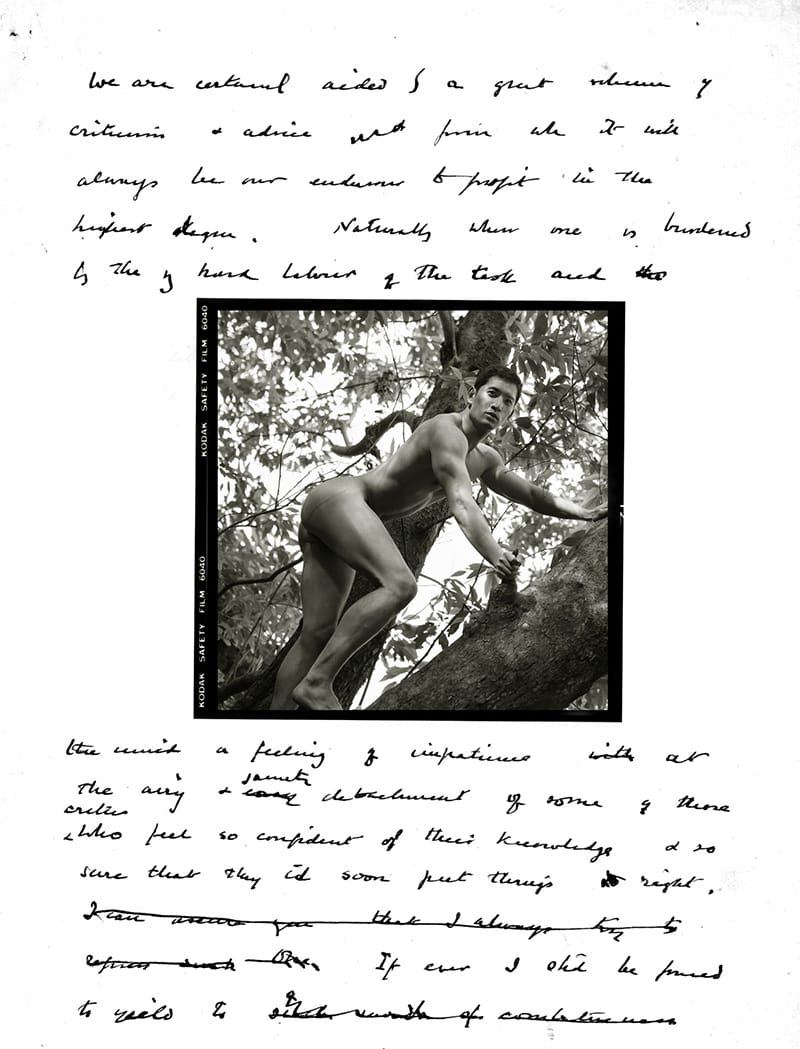 We are certainly aided by a great volume of
criticism & advice from wh it will
always be our endeavour to profit in the
highest degree. Naturally when one is burdened
by the hard labour of the task and the
KODAK SAFETY FILM 6040
KODAK SAFETY FILM 6040
the mind a feeling of impatience with at
the airy & jaunty detachment of some of those
critics
who feel so confident of their knowledge & so
sure that they cd soon put things right.
I can assure you that I always try to
repress such If ever I shd be forced
to yield to of combativeness